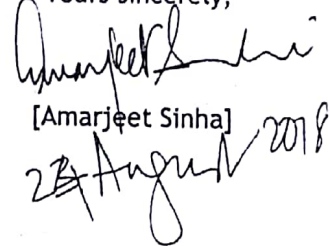 Yours sincerely,
Amarjeet Sinha
[Amarjeet Sinha]
August 2018